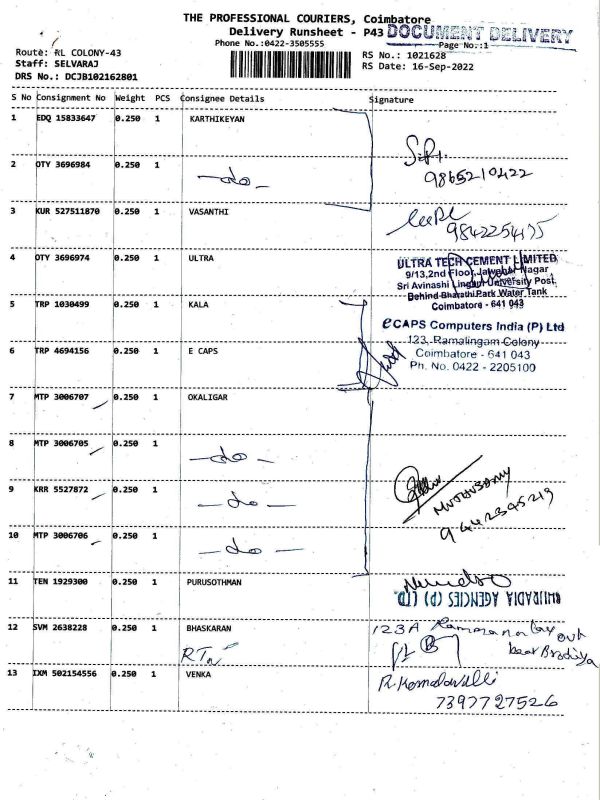 THE PROFESSIONAL COURIERS, Coimbatore
Delivery Runsheet - P43 DOCUMENT DELIVERY
Phone No.:0422-3505555 Page No.:1
Route: RL COLONY-43 RS No.: 1021628
Staff: SELVARAJ RS Date: 16-Sep-2022
DRS No.: DCJB102162801
S No Consignment No Weight PCS Consignee Details Signature
1 EDQ 15833647 0.250 1 KARTHIKEYAN
2 OTY 3696984 0.250 1 -do-
9865210422
3 KUR 527511870 0.250 1 VASANTHI
4 OTY 3696974 0.250 1 ULTRA
ULTRA TECH CEMENT LIMITED
9/13,2nd Floor,Jawahar Nagar
Sri Avinashi Lingam University Post,
Behind Bharathi Park Water Tank
Coimbatore - 641 043
5 TRP 1030499 0.250 1 KALA
eCAPS Computers India (P) Ltd
123, Ramalingam Colony
6 TRP 4694156 0.250 1 E CAPS
Coimbatore - 641 043
Ph. No. 0422 - 2205100
7 MTP 3006707 0.250 1 OKALIGAR
8 MTP 3006705 0.250 1 -do-
9 KRR 5527872 0.250 1 -do-
MUTHUSAMY
9442395219
10 MTP 3006706 0.250 1 -do-
11 TEN 1929300 0.250 1 PURUSOTHMAN
AGENCIES (P) LTD.
12 SVM 2638228 0.250 1 BHASKARAN
123A
out
13 IXM 502154556 0.250 1 VENKA
R. Komalavalli
7397727526